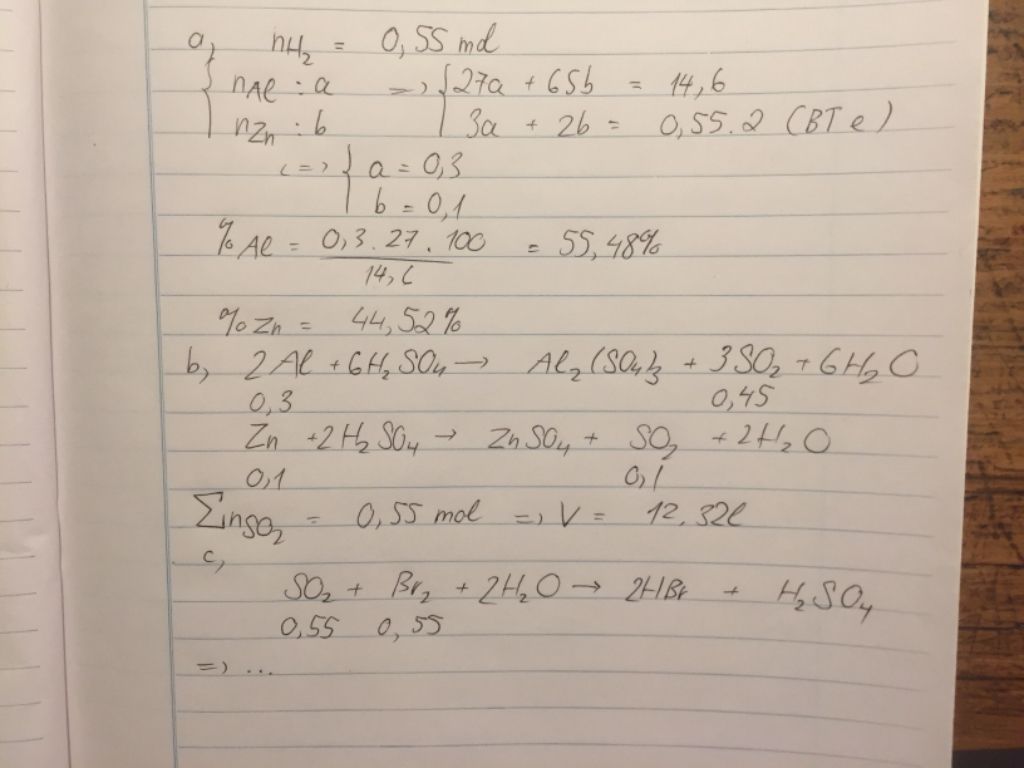 a, nH₂ = 0,55 mol
{ nAl : a => { 27a + 65b = 14,6
nZn : b 3a + 2b = 0,55.2 (BT e)
<=> { a = 0,3
b = 0,1
% Al = 0,3.27.100 = 55,48%
14,6
% Zn = 44,52%
b, 2Al + 6H₂SO₄ → Al₂(SO₄)₃ + 3SO₂ + 6H₂O
0,3 0,45
Zn + 2H₂SO₄ → ZnSO₄ + SO₂ + 2H₂O
0,1 0,1
∑nSO₂ = 0,55 mol => V = 12,32l
c,
SO₂ + Br₂ + 2H₂O → 2HBr + H₂SO₄
0,55 0,55
=> ...